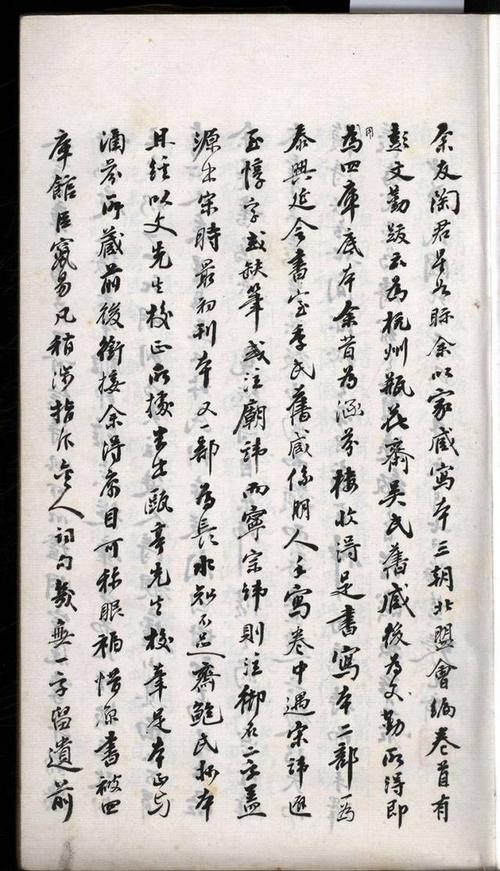 余友陶君星如眎余以家藏寫本三朝北盟會編卷首有
彭文勤跋云爲杭州瓶花齋吳氏舊藏後爲文勤所得即
用爲四庫底本余昔爲涵芬樓收得是書寫本二部一爲
泰興延令書室季氏舊藏係明人手寫卷中遇宋諱避
至惇字或缺筆或注廟諱而寧宗諱則注御名二字蓋
源出宋時最初刊本又一部爲長水知不足齋鮑氏抄本
且經以文先生校正所據者出甌亭先生校筆是本正與
涵芬所藏前後銜接余得亦目可稱眼福惜原書被四
庫館臣竄易凡稍涉指斥金人詞句幾無一字留遺前